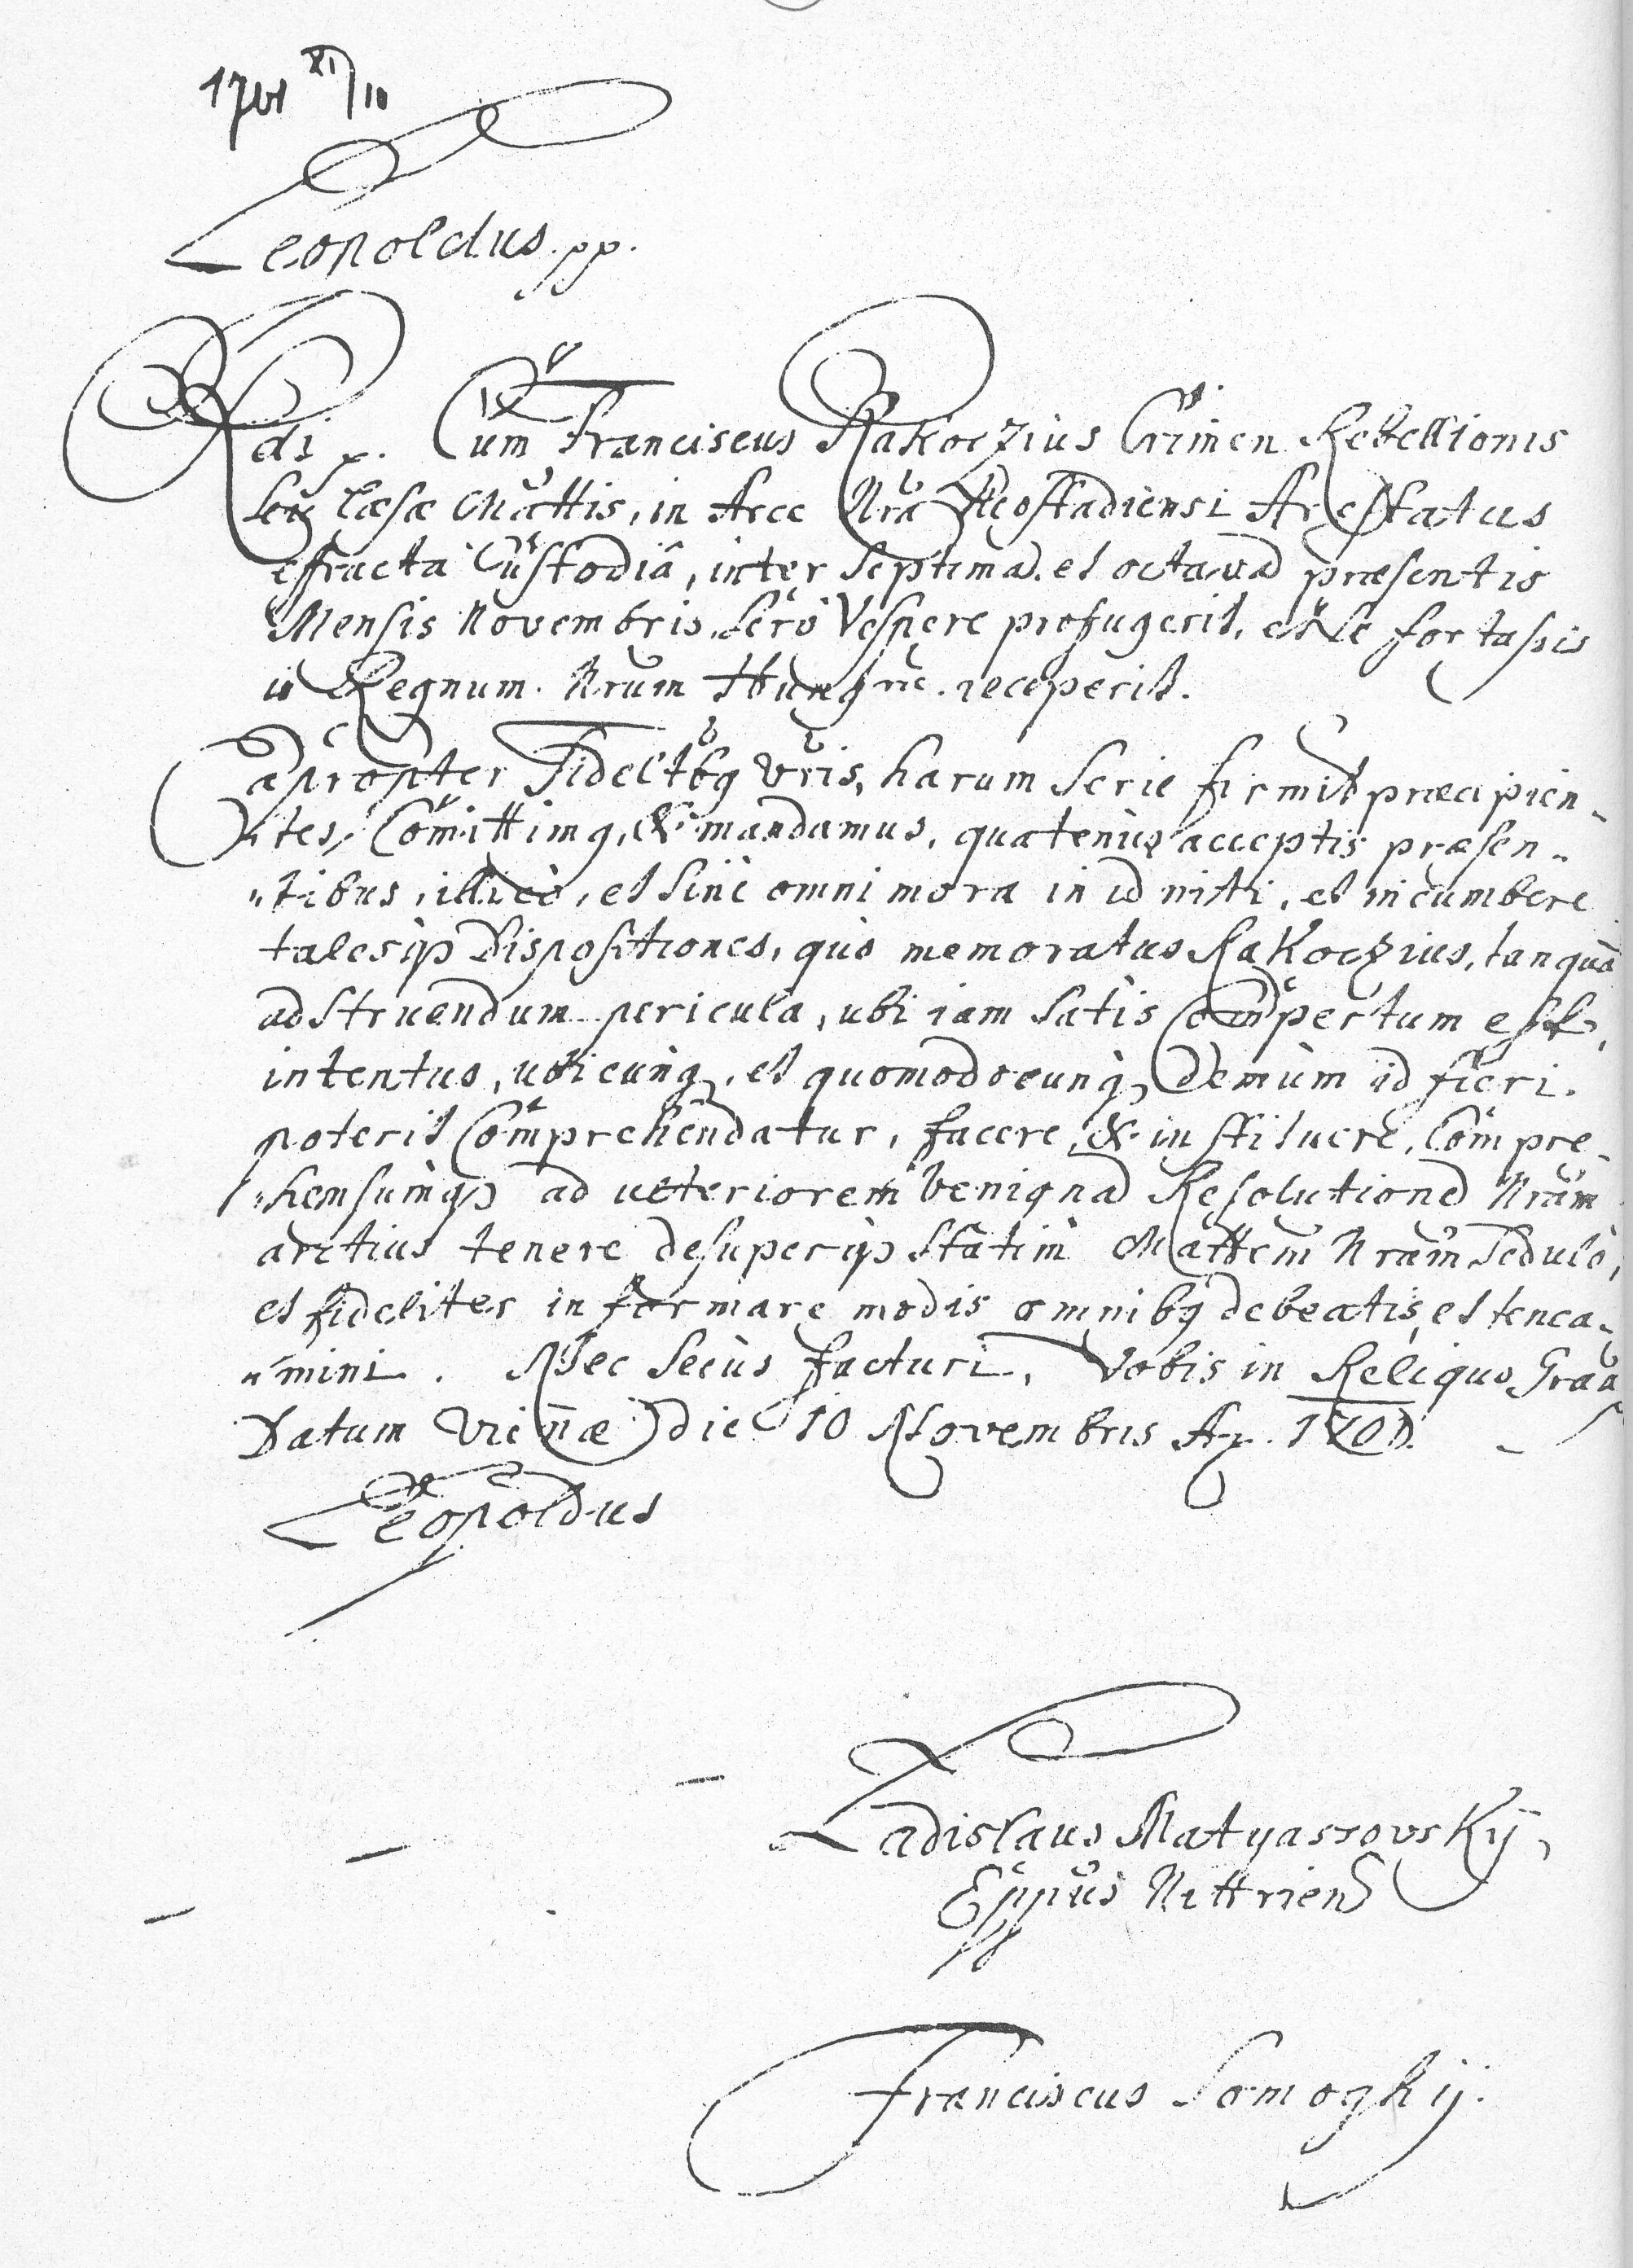 1701 XI/10
Leopoldus. pp.
Rdi p. Cum Franciscus Rakoczius Crimen Rebellionis
seu læsæ Mattis, in Arce Nrã Neostadiensi Arestatus
effracta Custodiâ, inter septimã. et octavã præsentis
Mensis Novembris, serò Vespere profugerit, et se fortassis
in Regnum Nrum Hungriæ. receperit.
Eapropter Fideltbq vris, harum serie firmitr præcipien-
tes, Comittimq, & mandamus, quatenus acceptis præsen-
tibus, illicò, et sine omni mora in id niti, et incumbere
talesqz Dispositiones, quo memoratus Rakoczius, tanquã
ad struendum pericula, ubi iam satis Compertum est,
intentus, ubicunq, et quomodocunq, Demùm id fieri.
poterit Comprehendatur, facere, & instituere, Compre-
hensumqz ad ulteriorem benignã Resolutionẽ Nrãm
arctius tenere desuperqz statim Mattem Nrãm sedulò,
et fideliter informare modis omnibq debeatis, et tenea-
mini. Nec secùs facturi, Vobis in Reliquo Grãa
Datum Viennæ die 10 Novembris Ao. 1701.
Leopoldus
Ladislaus Matyasrovskÿ,
Eppus Nittrien
Franciscus Somoghÿ.